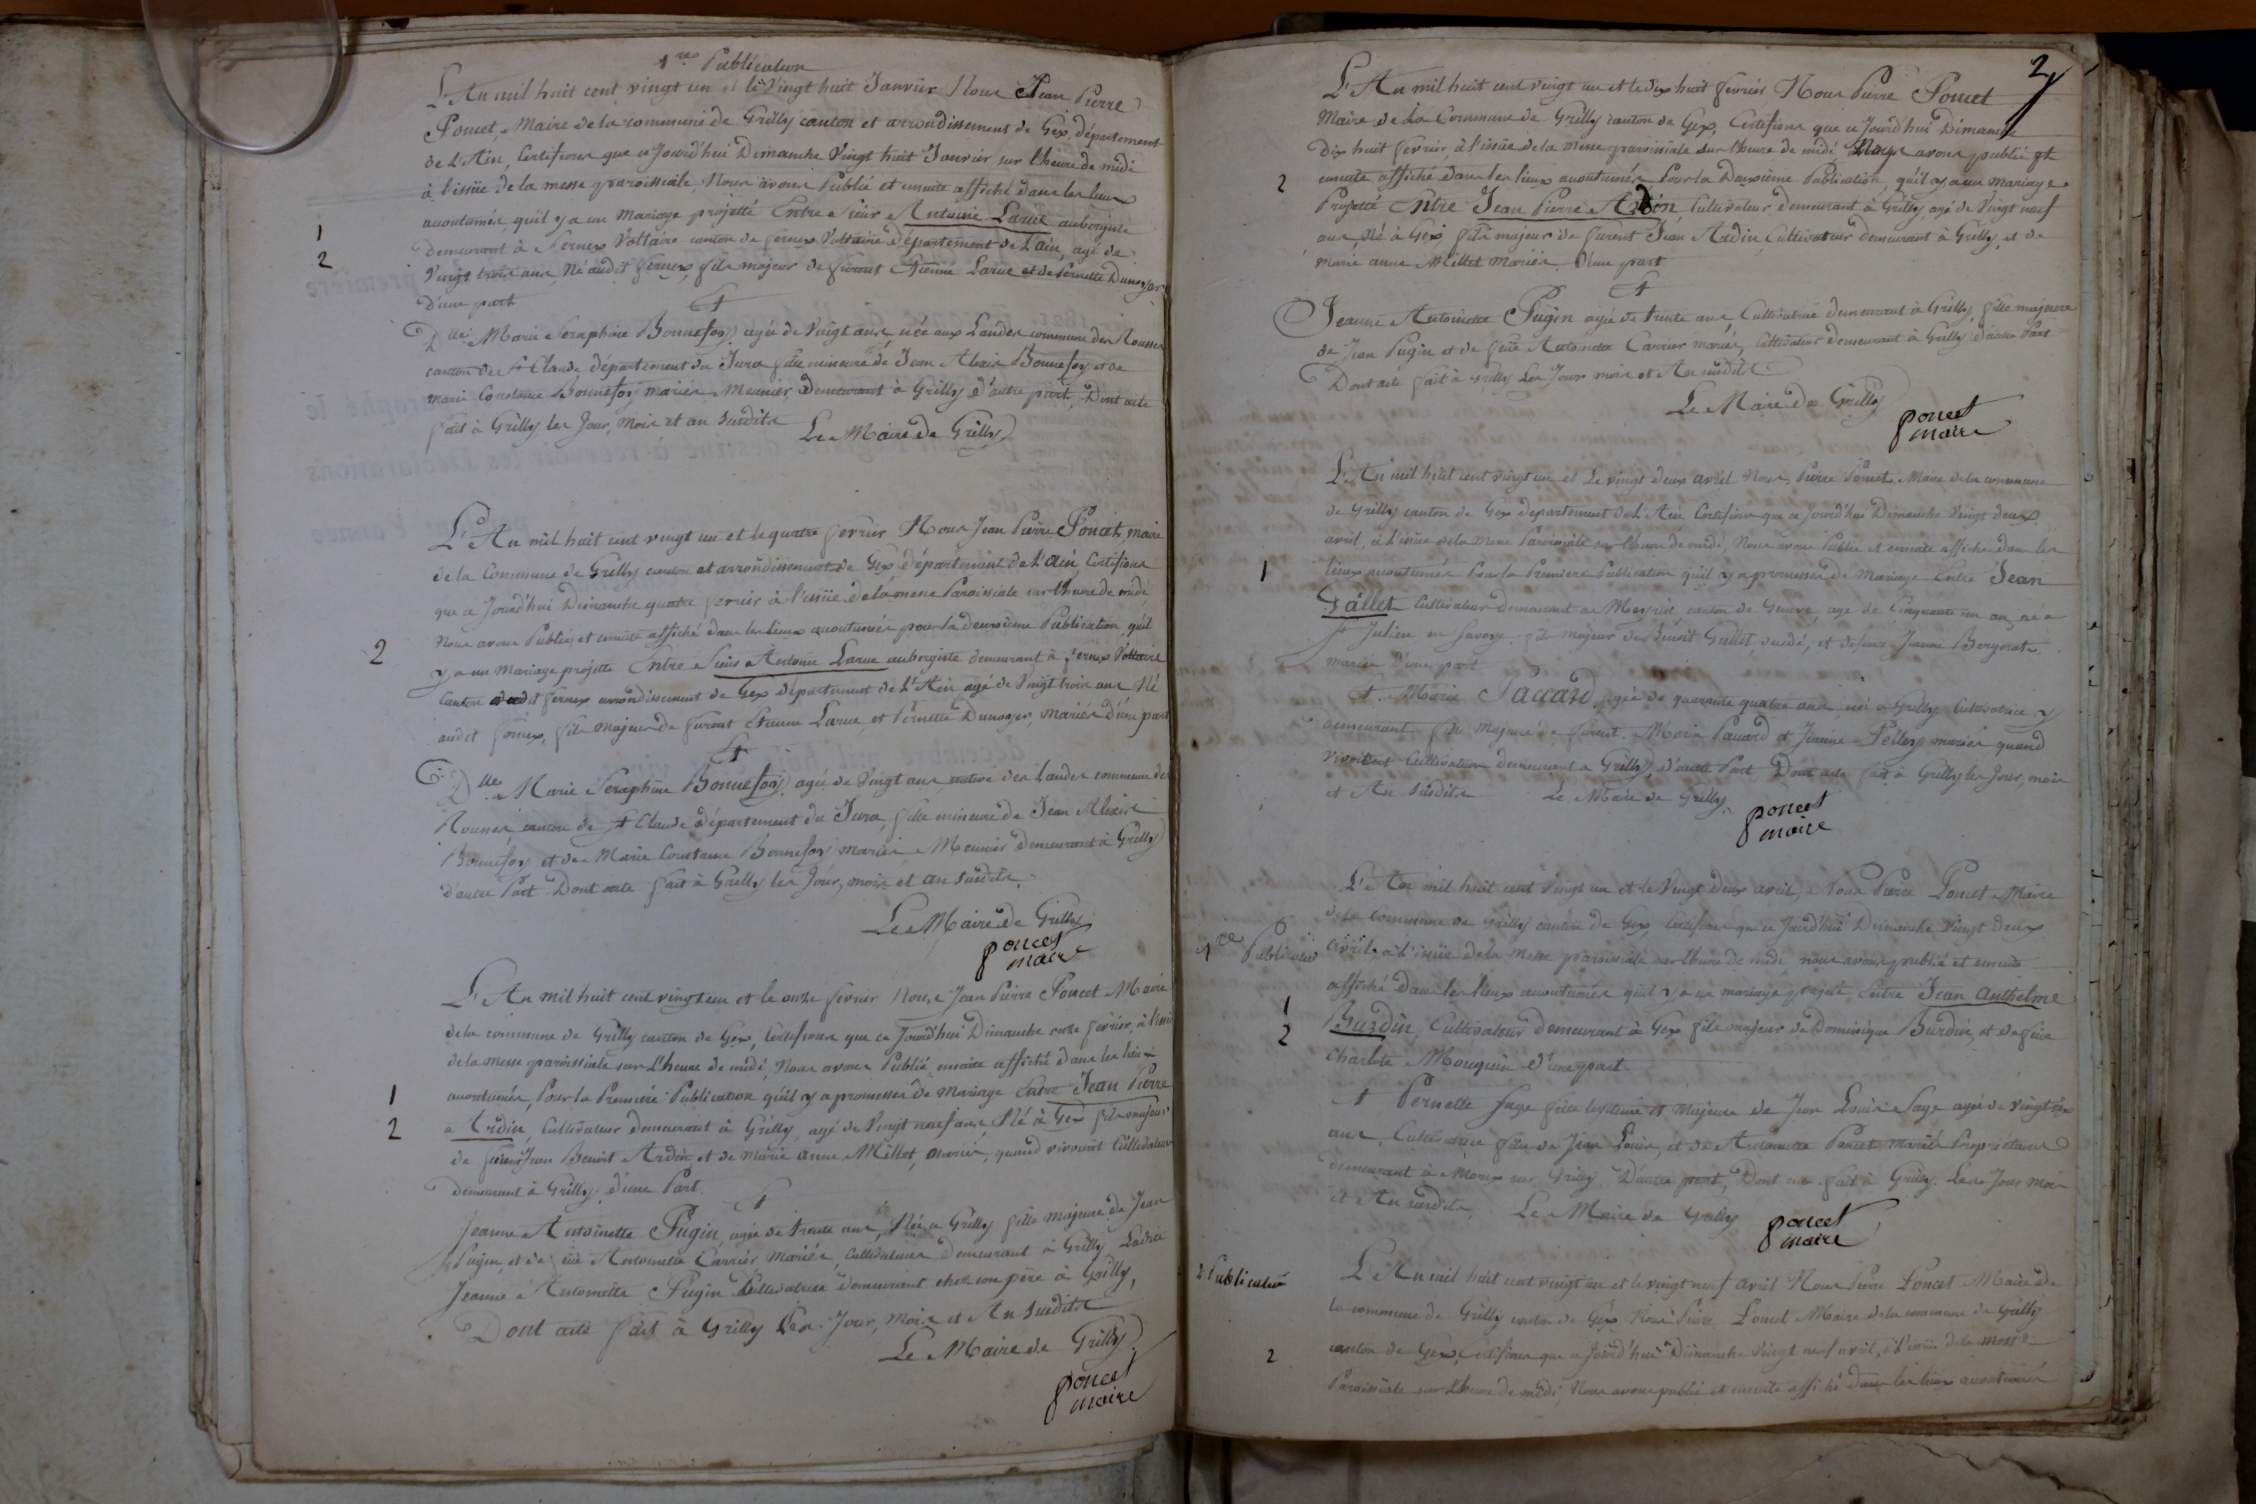 1re Publication
L'An mil huit cent vingt un et le Vingt huit Janvier Nous Jean Pierre
Poncet, Maire de la commune de Grilly canton et arrondissement de Gex, département
de L'Ain, Certifions que ce Jourd'hui Dimanche Vingt huit Janvier sur l'heure de midi
à l'issüe de la messe paroissiale, Nous avons Publié et ensuite affiché dans les lieux
accoutumés, qu'il y a un Mariage projetté Entre Sieur Antoine Larue aubergiste
1
demeurant à Fernex Voltaire canton de fernex Voltaire Département de L'ain, agé de
2
Vingt trois ans, Né audit fernex, fils majeur de furent Etienne Larue et de Pernette Dunoyer
D'une part
&
Dlle Marie Seraphine Bonnefoy agée de Vingt ans née aux Landes commune des Rousses
canton de St Claude département du Jura fille mineure de Jean Alexis Bonnefoy et de
Marie Constance Bonnefoy mariés, Meunier demeurant à Grilly d'autre part, Dont acte
fait à Grilly les Jour, Mois et an susdits
Le Maire de Grilly
L'An mil huit cent vingt un et le quatre fevrier Nous Jean Pierre Poncet, maire
de la Commune de Grilly canton et arrondissement de Gex département de L'ain Certifions
que ce Jourd'hui Dimanche quatre fevrier à l'issüe de la messe Paroissiale sur l'heure de midi
Nous avons Publié, et ensuite affiché dans les lieux accoutumés pour la deuxième Publication, qu'il
2
y a un Mariage projetté Entre Sieur Antoine Larue aubergiste demeurant à Fernex Voltaire
Canton dudit fernex arrondissement de Gex département de L'Ain agé de Vingt trois ans Né
audit fernex, fils majeur de furent Etienne Larue, et Pernette Dunoyer, mariés d'une part
&
Dlle Marie Seraphine Bonnefoy agée de Vingt ans native des Landes commune des
Rousses, canton de St Claude département du Jura, fille mineure de Jean Alexis
Bonnefoy et de Marie Constance Bonnefoy mariés Meunier demeurant à Grilly
d'autre Part Dont acte fait à Grilly les Jour, mois et an susdits.
Le Maire de Grilly
poncet
maire
L'An mil huit cent vingt un et le onze fevrier Nous Jean Pierre Poncet Maire
de la commune de Grilly canton de Gex, Certifions que ce Jourd'hui Dimanche onze fevrier, à l'issüe
de la messe paroissiale sur L'heure de midi, Nous avons Publié ensuite affiché dans les lieux
1
accoutumés, Pour la Première Publication qu'il y a promesses de Mariage Entre Jean Pierre
2
Ardin, Cultivateur demeurant à Grilly, agé de Vingt neuf ans, Né à Gex fils majeur
de Jean Benoit Ardin et de Marie anne Millet, mariés, quand vivoient Cultivateurs
demeurant à Grilly d'une Part.
&
Jeanne Antoinette Pugin agée de trente ans, Née à Grilly fille Majeure de Jean
Pugin, et de füe Antoinette Carrier Mariés, Cultivateurs demeurant à Grilly Ladite
Jeanne Antoinette Pugin Cultivatrice demeurant chez son père à Grilly,
Dont acte fait à Grilly Les Jour, Mois et An susdits
Le Maire de Grilly
poncet
maire
2
L'An mil huit cent vingt un et le Dix huit fevrier Nous Pierre Poncet
Maire de La Commune de Grilly canton de Gex, Certifions que ce Jourd'hui Dimanche
Dix huit fevrier, à l'issüe de la Messe paroissiale sur l'heure de midi, Nous avons publié et
2
ensuite affiché dans les lieux accoutumés, Pour la Deuxième Publication, qu'il y a un Mariage
Projetté Entre Jean Pierre Ardin, Cultivateur demeurant à Grilly, agé de Vingt neuf
ans, Né à Gex fils majeur de furent Jean Ardin Cultivateur demeurant à Grilly, et de
Marie anne Millet Mariés D'une part
&
Jeanne Antoinette Pugin agée de trente ans Cultivatrice demeurant à Grilly, fille majeure
de Jean Pugin et de feüe Antoinette Carrier mariés, Cultivateur demeurant à Grilly d'autre Part
Dont acte fait à Grilly Les Jour mois et An susdits
Le Maire de Grilly
poncet
maire
L'An mil huit cent vingt un et Le vingt deux avril Nous Pierre Poncet Maire de la commune
de Grilly canton de Gex département de L'Ain Certifions que ce jourd'hui Dimanche Vingt deux
avril, à L'issüe de la Messe Paroissiale sur l'heure de midi, Nous avons Publié et ensuite affiché dans les
1
lieux accoutumés Pour la Première Publication qu'il y a promesses de Mariage Entre Jean
Gallet Cultivateur demeurant à canton de Genève, agé de Cinquante un an, né à
St Julien en Savoye fils majeur de Benoit Gallet et de Jeanne
mariés D'une part
& Marie Paccard agée de quarante quatre ans née à Grilly Cultivatrice y
demeurant fille Majeure de Paccard et Jeanne Pelley mariés quand
vivoient Cultivateurs demeurant à Grilly, d'autre Part Dont acte fait à Grilly les Jour, mois
et An susdits Le Maire de Grilly
poncet
maire
L'An mil huit cent Vingt un et le Vingt deux avril, Nous Pierre Poncet Maire
de la Commune de Grilly canton de Gex, Certifions que ce Jourd'hui Dimanche Vingt deux
1re Publication
avril, à l'issüe de la Messe paroissiale sur l'heure de midi nous avons publié et ensuite
affiché Dans les lieux accoutumés qu'il y a un mariage projetté, Entre Jean anthelme
1
2
Burdin, Cultivateur demeurant à Gex fils majeur de Dominique Burdin, et de feüe
Charlotte Mouquin d'une part
& Pernette Sage fille légitime et Majeure de Jean Louis Sage agée de vingt six
ans, Cultivatrice fille de Jean Louis, et de Antoinette Poncet mariés Propriétaires
demeurant à Mourex sur Grilly, D'autre part, Dont acte fait à Grilly, Les Jour Mois
et An susdits, Le Maire de Grilly
poncet
maire
2 Publication
L'An mil huit cent vingt un et le vingt neuf avril Nous Pierre Poncet Maire de
la commune de Grilly canton de Gex Nous Pierre Poncet Maire de la commune de Grilly
2
canton de Gex, Certifions que ce Jourd'hui Dimanche Vingt neuf avril, à L'issüe de la messe
Paroissiale sur L'heure de midi, Nous avons publié et ensuite affiché dans les lieux accoutumés